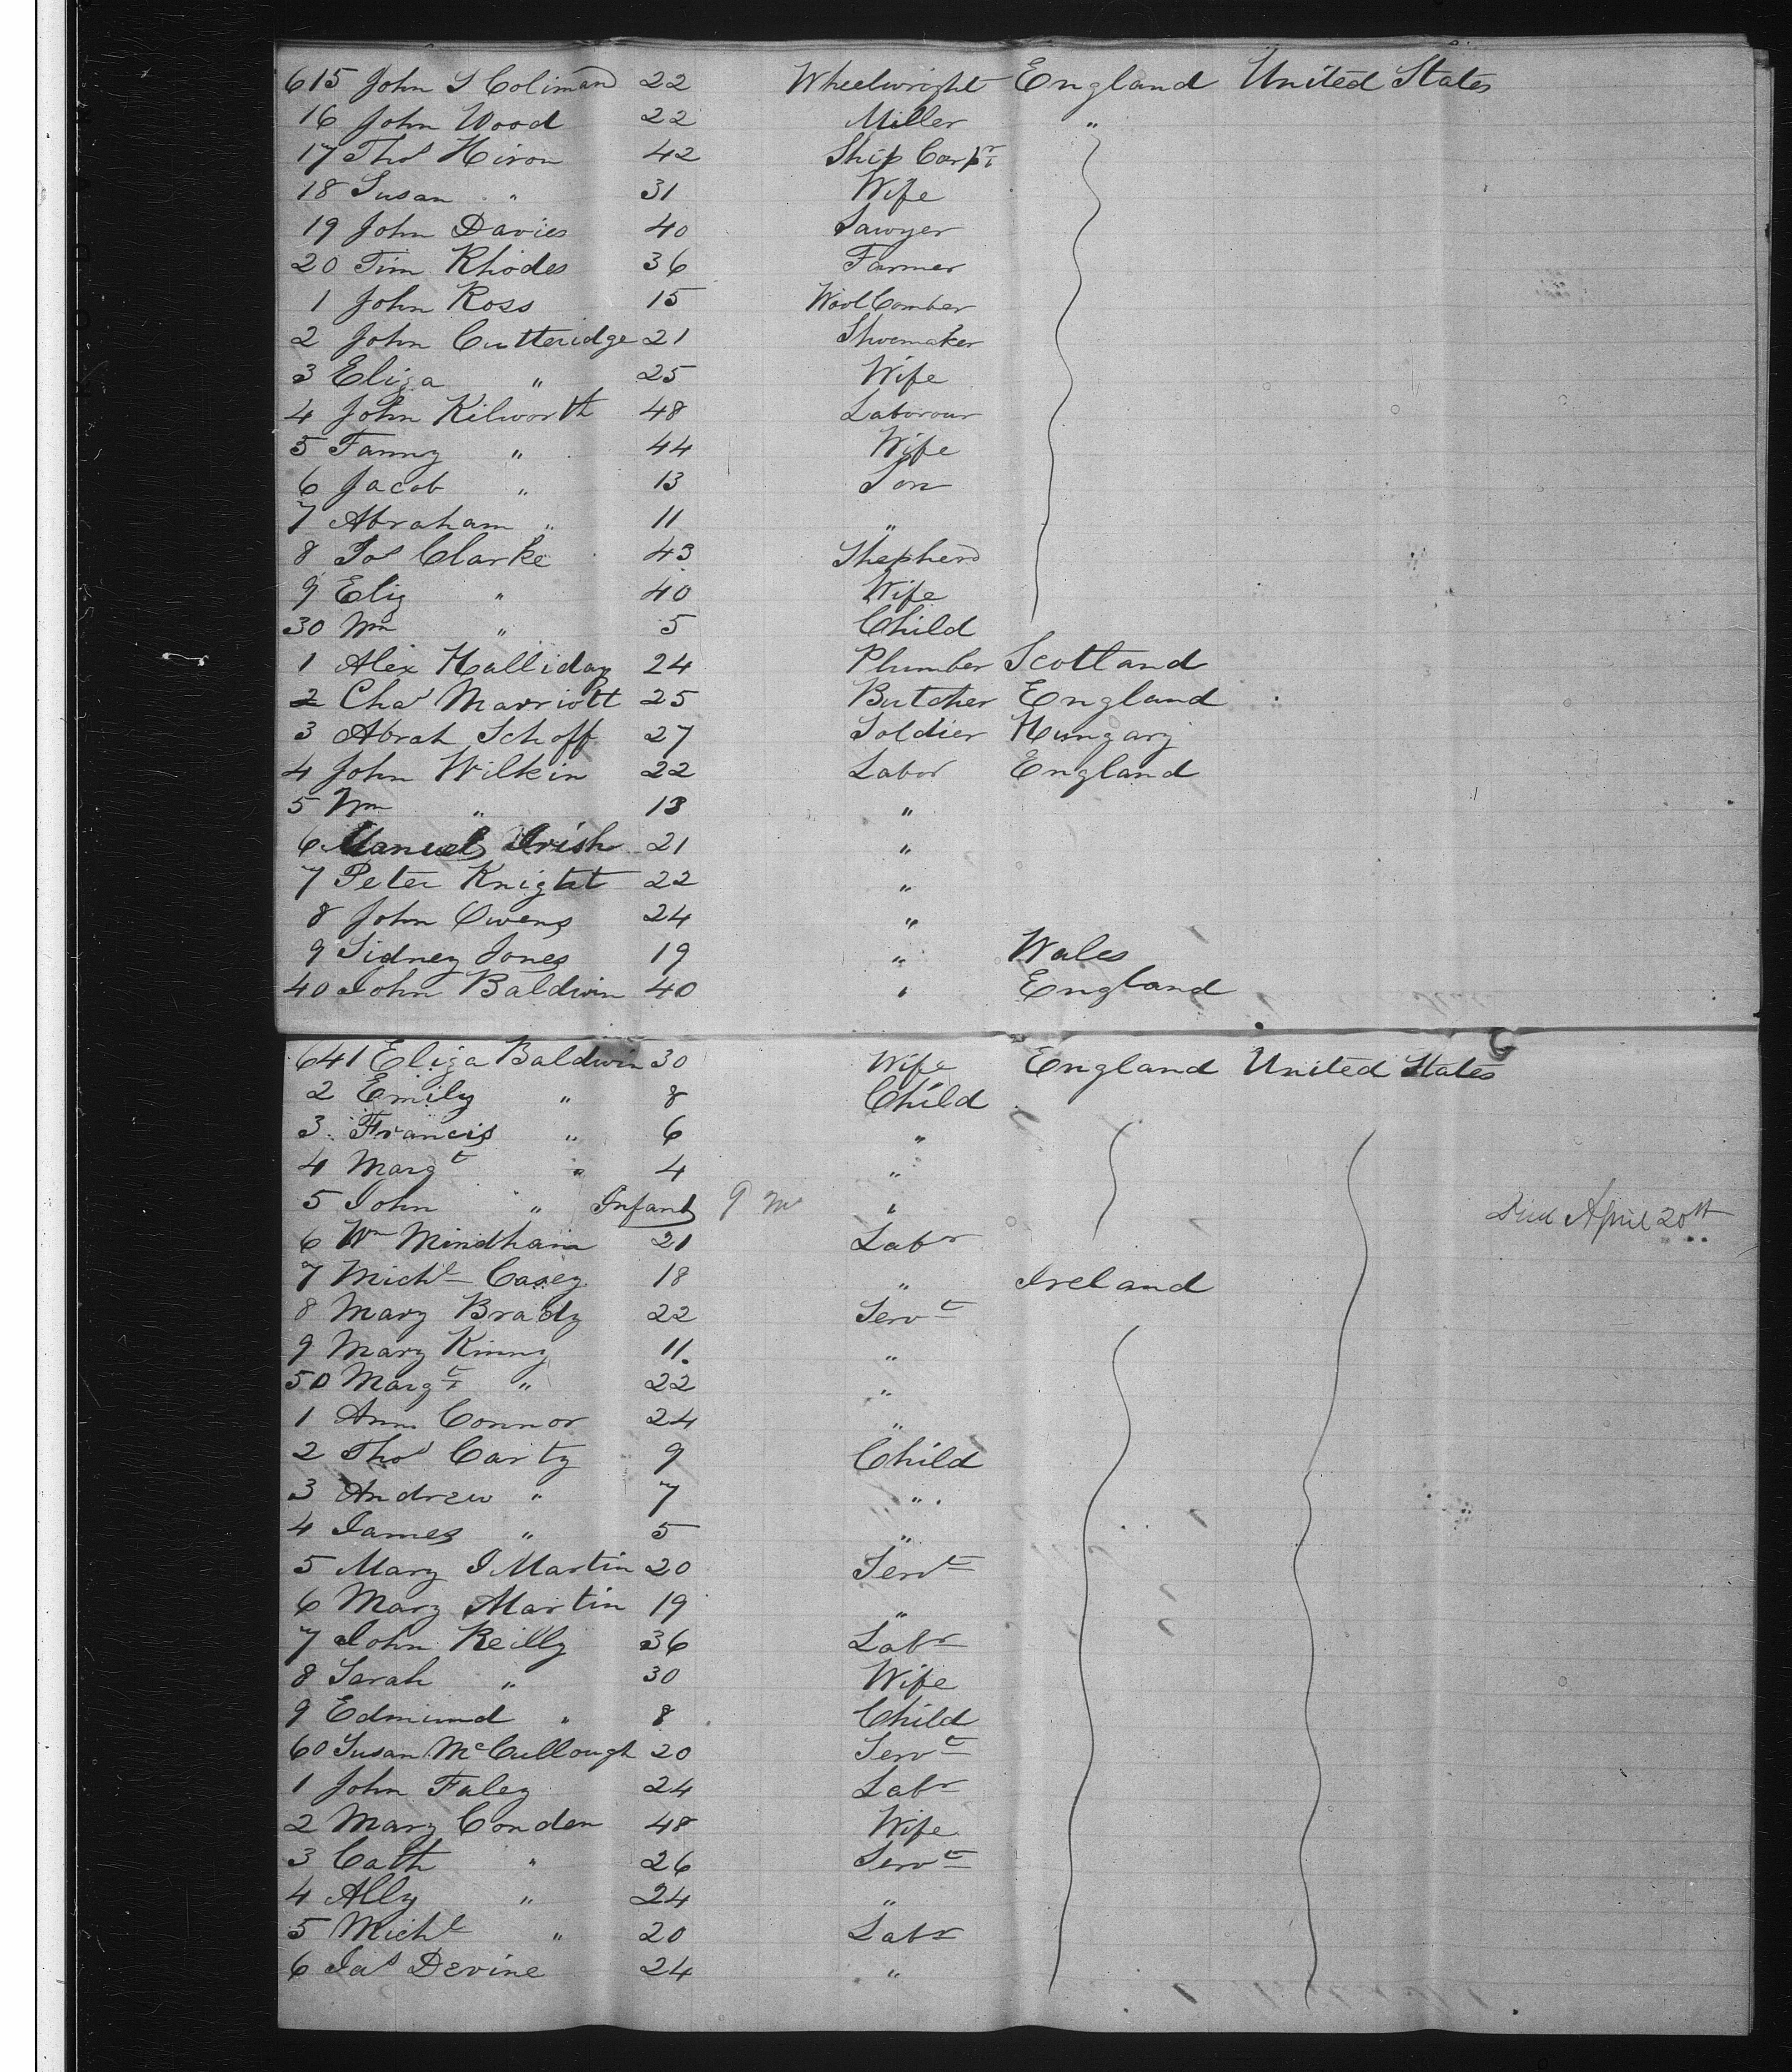 615 John S Coliman 22 Wheelwright England United States
16 John Wood 22 Miller "
17 Thos Hiron 42 Ship Carptr
18 Susan " 31 Wife
19 John Davies 40 Sawyer
20 Tim Rhodes 36 Farmer
1 John Ross 15 Wool Comber
2 John Cutteridge 21 Shoemaker
3 Eliza " 25 Wife
4 John Kilworth 48 Laborour
5 Fanny " 44 Wife
6 Jacob " 13 Son
7 Abraham " 11 "
8 Jos Clarke 43 Shepherd
9 Eliz " 40 Wife
30 Wm " 5 Child
1 Alex Halliday 24 Plumber Scotland
2 Chas Marriott 25 Butcher England
3 Abrah Schoff 27 Soldier Hungary
4 John Wilkin 22 Labor England
5 Wm " 13 "
6 Manuel Irish 21 "
7 Peter Knight 22 "
8 John Owens 24 "
9 Sidney Jones 19 " Wales
40 John Baldwin 40 " England
641 Eliza Baldwin 30 Wife England United States
2 Emily " 8 Child
3 Francis " 6 "
4 Margt " 4 "
5 John " Infant 9 m " Died April 20th
6 Wm Mindham 21 Labr
7 Michl Casey 18 " Ireland
8 Mary Brady 22 Servt
9 Mary Kinny 11 "
50 Margt " 22 "
1 Ann Connor 24 "
2 Thos Carty 9 Child
3 Andrew " 7 "
4 James " 5 "
5 Mary J Martin 20 Servt
6 Mary Martin 19 "
7 John Reilly 36 Labr
8 Sarah " 30 Wife
9 Edmund " 8 Child
60 Susan McCullough 20 Servt
1 John Faley 24 Labr
2 Mary Conden 48 Wife
3 Cath " 26 Servt
4 Ally " 24 "
5 Michl " 20 Labr
6 Jas Devine 24 "